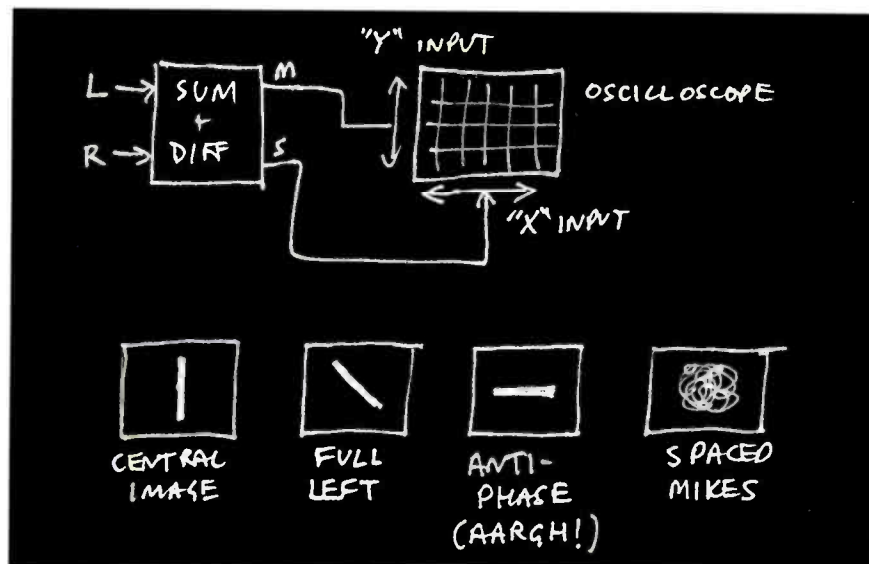 "Y" INPUT
L
SUM
+
DIFF
M
OSCILLOSCOPE
R
S
"X" INPUT
CENTRAL
IMAGE
FULL
LEFT
ANTI-
PHASE
(AARGH!)
SPACED
MIKES